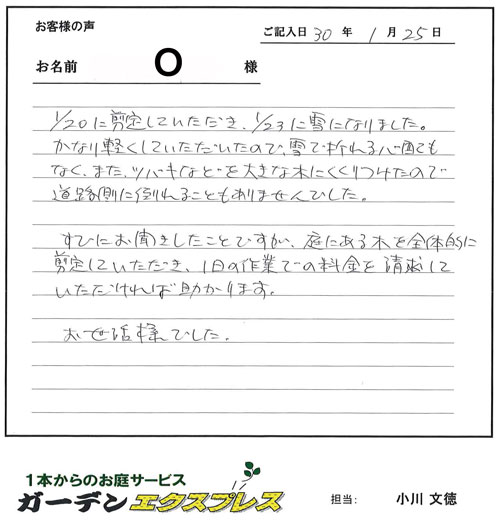 お客様の声
ご記入日 30 年 1 月 25 日
お名前 O 様
1/20に剪定していただき、1/23に雪になりました。
かなり軽くしていただいたので、雪で折れる心配も
なく、また、ツバキなどを大きな木にくくりつけたので
道路側に倒れることもありませんでした。
すでにお聞きしたことですが、庭にある木を全体的に
剪定していただき、1日の作業での料金を請求して
いただければ助かります。
お世話様でした。
1本からのお庭サービス
ガーデンエクスプレス
担当: 小川 文徳